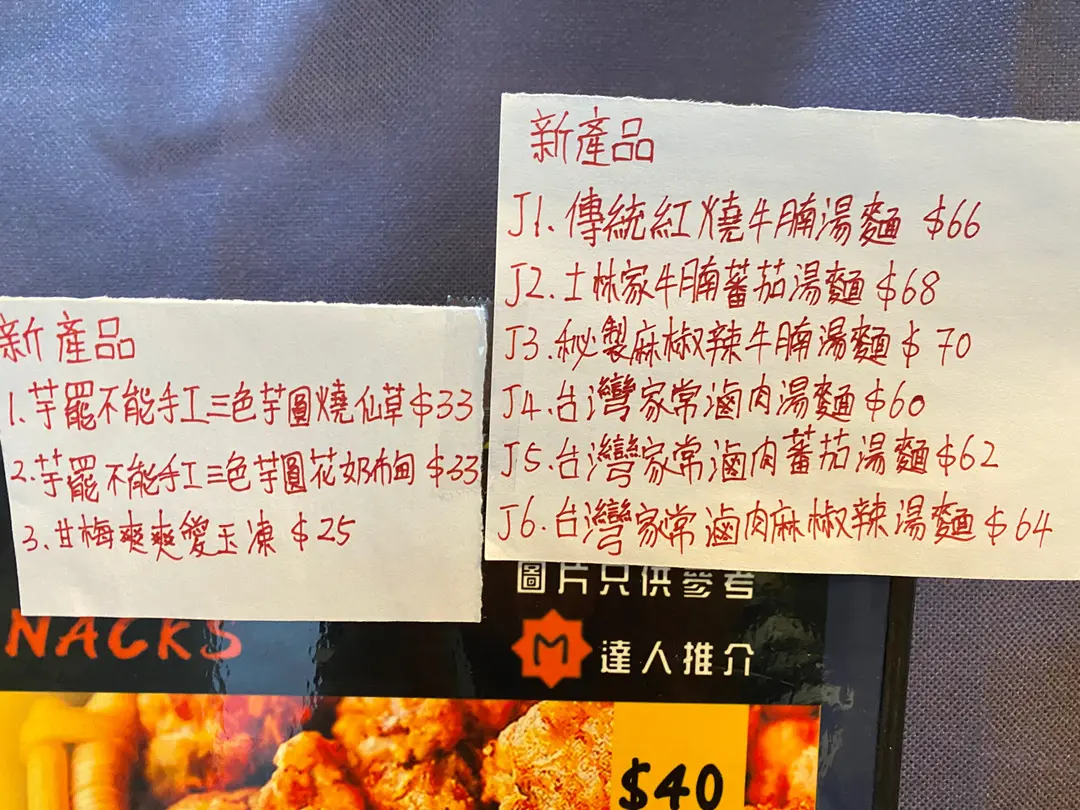 新產品
1.芋罷不能手工三色芋圓燒仙草$33
2.芋罷不能手工三色芋圓花奶布甸 $33
3.甘梅爽爽愛玉凍 $25
新產品
J1.傳統紅燒牛腩湯麵 $66
J2.士林家牛腩蕃茄湯麵 $68
J3.秘製麻椒辣牛腩湯麵 $70
J4.台灣家常滷肉湯麵 $60
J5.台灣家常滷肉蕃茄湯麵 $62
J6.台灣家常滷肉麻椒辣湯麵 $64
圖片只供參考
NACKS
M 達人推介
$40